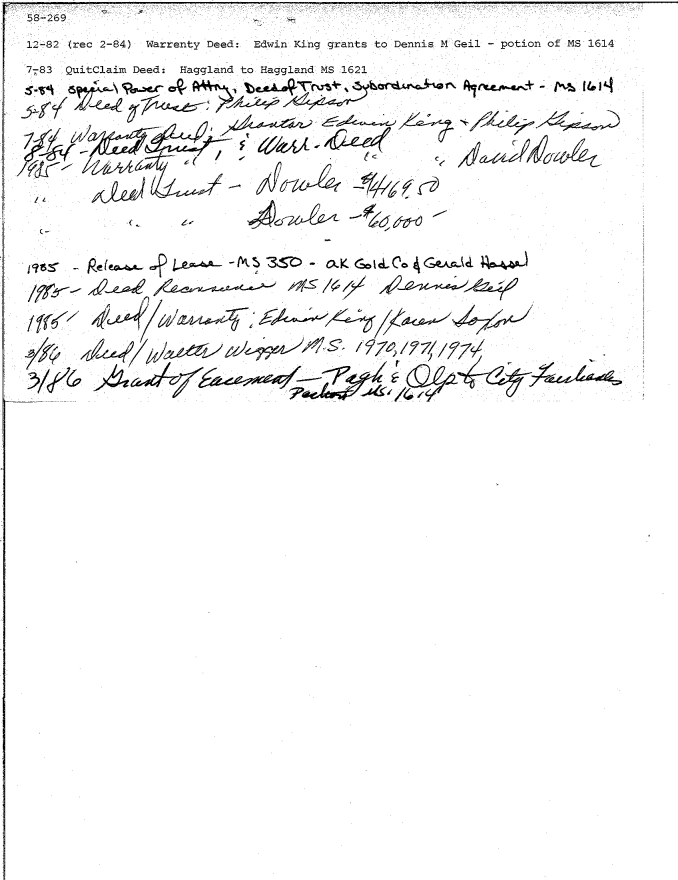 58-269
12-82 (rec 2-84) Warrenty Deed: Edwin King grants to Dennis M Geil - potion of MS 1614
7-83 QuitClaim Deed: Haggland to Haggland MS 1621
5-84 Special Power of Attny, Deed of Trust, Subordination Agreement - MS 1614
5-84 Deed of Trust: Philip Gipson
7-84 Warranty Deed; Grantor Edwin King + Philip Gipson
8-84 - Deed Trust, & Warr. Deed " " David Dowler
1985 - Warranty "
" Deed Trust - Dowler
" " " Dowler - $60,000 -
1985 - Release of Lease - MS 350 - AK Gold Co & Gerald Hassel
1985 - Deed MS 1614 Dennis Geil
1985 - Deed/Warranty; Edwin King/Karen
3/86 Deed/Walter Wigger M.S. 1970, 1971, 1974
3/86 Grant of Easement - Pagh & Olp to City Fairbanks
MS. 1614